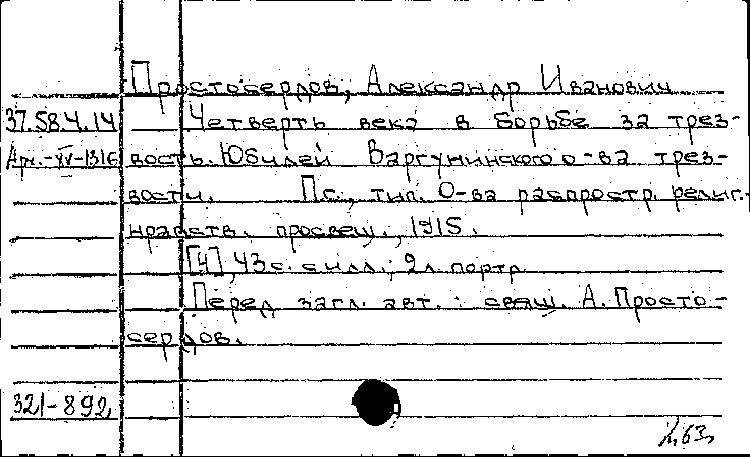 Простосердов, Александр Иванович
37.58.4.14 Четверть века в борьбе за трез-
Арх.-XV-1316 вость. Юбилей Варгунинского о-ва трез-
вости. Пг., тип. О-ва распростр. религ.-
нравств. просвещ., 1915.
[4], 43 с. с илл., 2 л. портр.
Перед загл. авт.: свящ. А. Просто-
сердов.
321-892
63